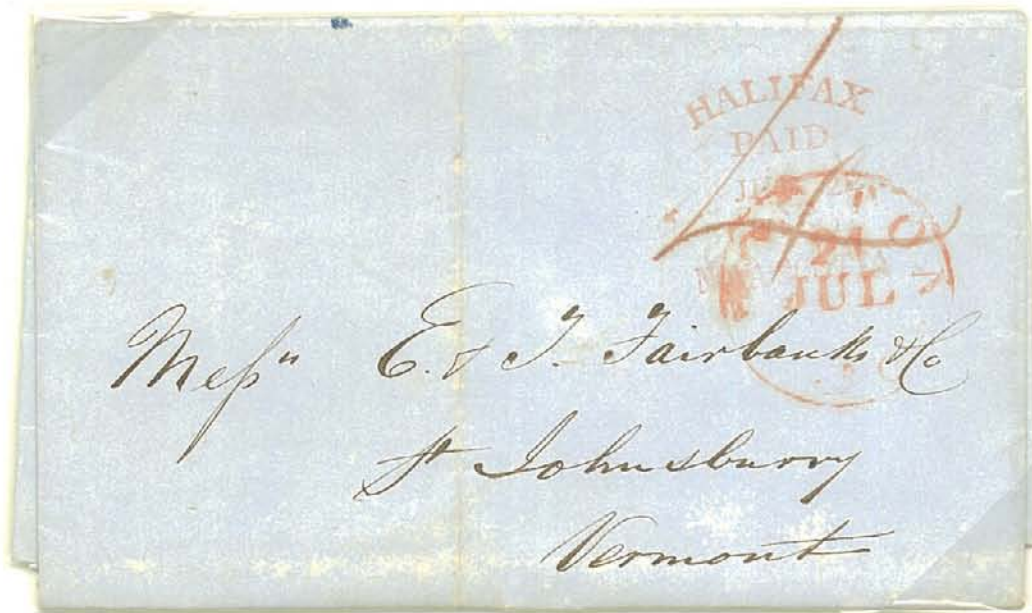 HALIFAX
PAID
21
JUL
Messrs E. & T. Fairbanks & Co
St Johnsburry
Vermont